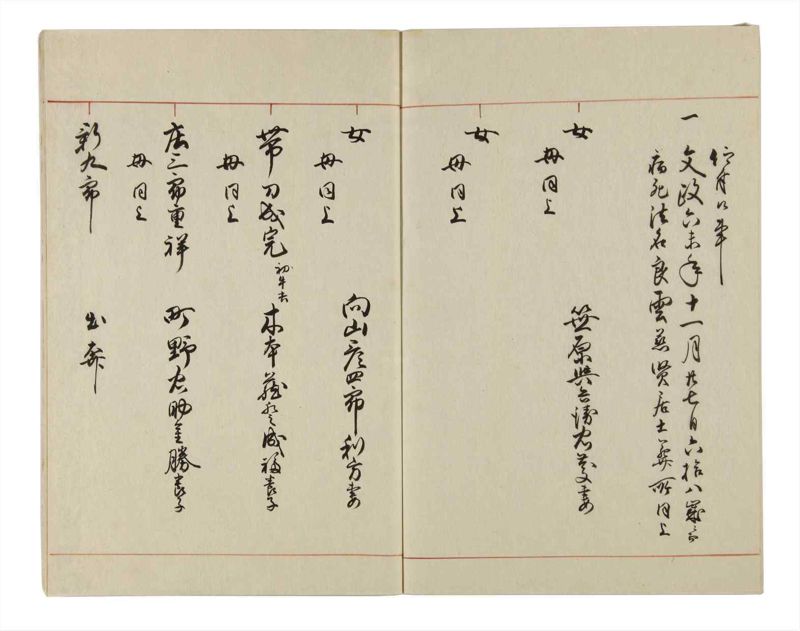 一 文政六未年十一月廿七日六拾八歳ニ而
病死法名良雲慈賢居士葬所同上
女 笹原與兵衛忠義妻
母同上
女
母同上
女 向山彦四郎利方妻
母同上
帯刀成完 初牛太 木本藤成福養子
母同上
庄三郎重祥 町野左助重勝養子
母同上
新九郎 出奔